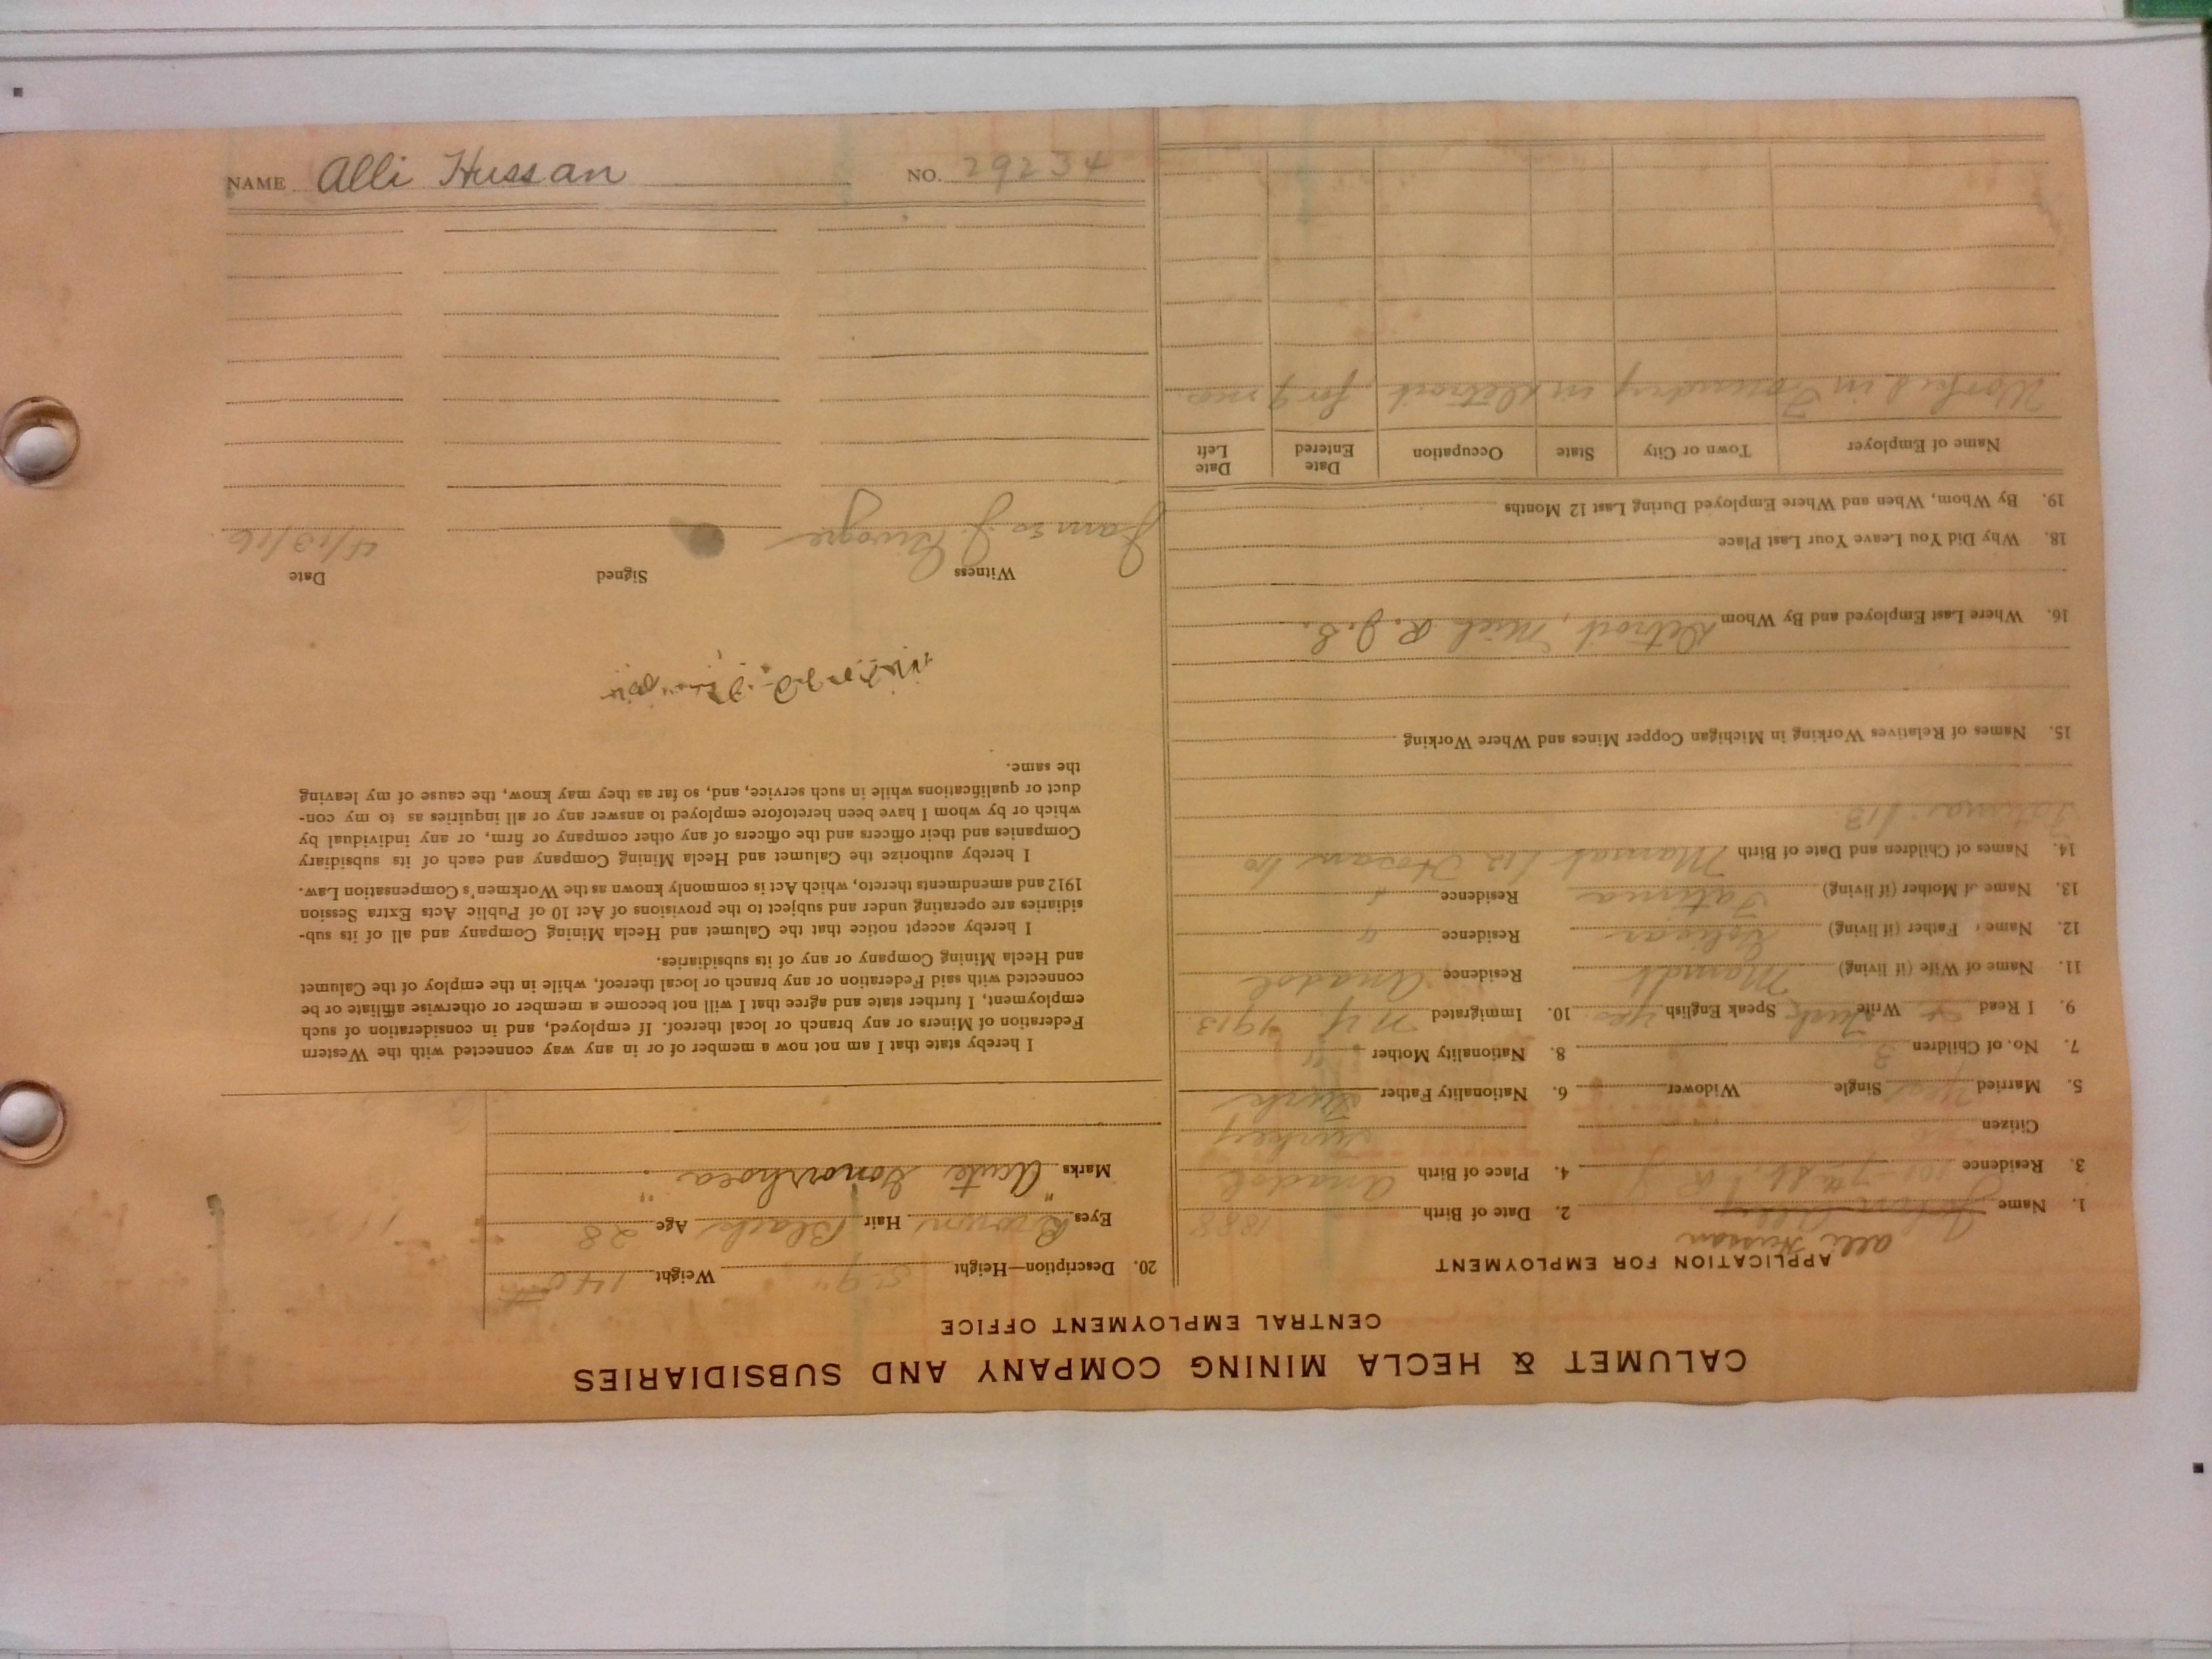 NAME Alli Hussan NO. 29234
CALUMET & HECLA MINING COMPANY AND SUBSIDIARIES
CENTRAL EMPLOYMENT OFFICE
APPLICATION FOR EMPLOYMENT
Alli Hussan
1. Name 2. Date of Birth 1888
3. Residence 101-7th St. 4. Place of Birth Anadol
Citizen Turkey
5. Married Yes Single Widower 6. Nationality Father Turk
7. No. of Children 3 8. Nationality Mother "
9. I Read & Write Turk Speak English yes 10. Immigrated N.Y. 1913
11. Name of Wife (if living) Residence Anadol
12. Name Father (if living) Residence "
13. Name of Mother (if living) Fatima Residence "
14. Names of Children and Date of Birth
Fatima /13.
15. Names of Relatives Working in Michigan Copper Mines and Where Working
16. Where Last Employed and By Whom Detroit, Mich
18. Why Did You Leave Your Last Place
19. By Whom, When and Where Employed During Last 12 Months
Name of Employer Town or City State Occupation Date Entered Date Left
Worked in Foundry in Detroit for 9 mos.
20. Description—Height 5-9" Weight 140
Eyes Brown Hair Black Age 28
Marks "Acute Gonorrhoea"
I hereby state that I am not now a member of or in any way connected with the Western
Federation of Miners or any branch or local thereof. If employed, and in consideration of such
employment, I further state and agree that I will not become a member or otherwise affiliate or be
connected with said Federation or any branch or local thereof, while in the employ of the Calumet
and Hecla Mining Company or any of its subsidiaries.
I hereby accept notice that the Calumet and Hecla Mining Company and all of its sub-
sidiaries are operating under and subject to the provisions of Act 10 of Public Acts Extra Session
1912 and amendments thereto, which Act is commonly known as the Workmen's Compensation Law.
I hereby authorize the Calumet and Hecla Mining Company and each of its subsidiary
Companies and their officers and the officers of any other company or firm, or any individual by
which or by whom I have been heretofore employed to answer any or all inquiries as to my con-
duct or qualifications while in such service, and, so far as they may know, the cause of my leaving
the same.
Witness Signed Date
James J. 4/13/16